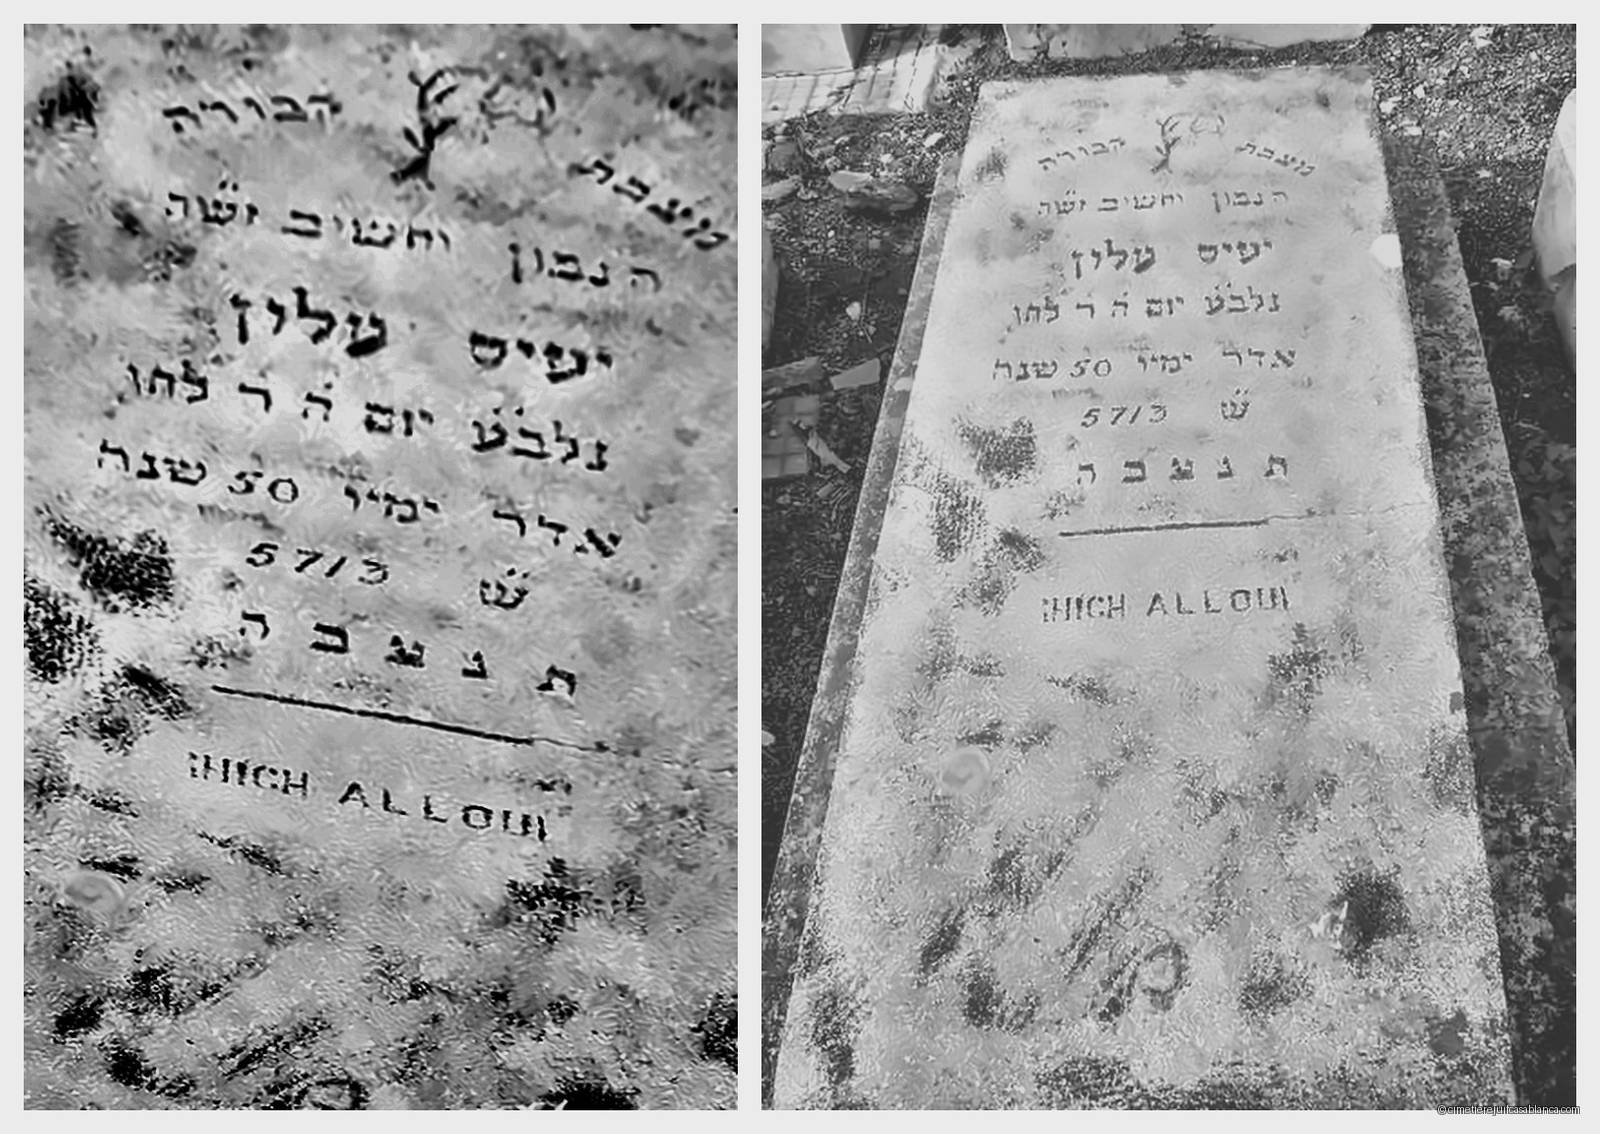 מצבת קבורה
הנבון וחשוב זש״ה
יעיש עלין
נלב״ע יום ה׳ ר לחו
אדר ימיו 50 שנה
ש״ 5713
ת נ צ ב ה
IHICH ALLOUI
מצבת קבורה
הנבון וחשוב זש״ה
יעיש עלין
נלב״ע יום ה׳ ר לחו
אדר ימיו 50 שנה
ש״ 5713
ת נ צ ב ה
IHICH ALLOUI
©cimetierejuifcasablanca.com